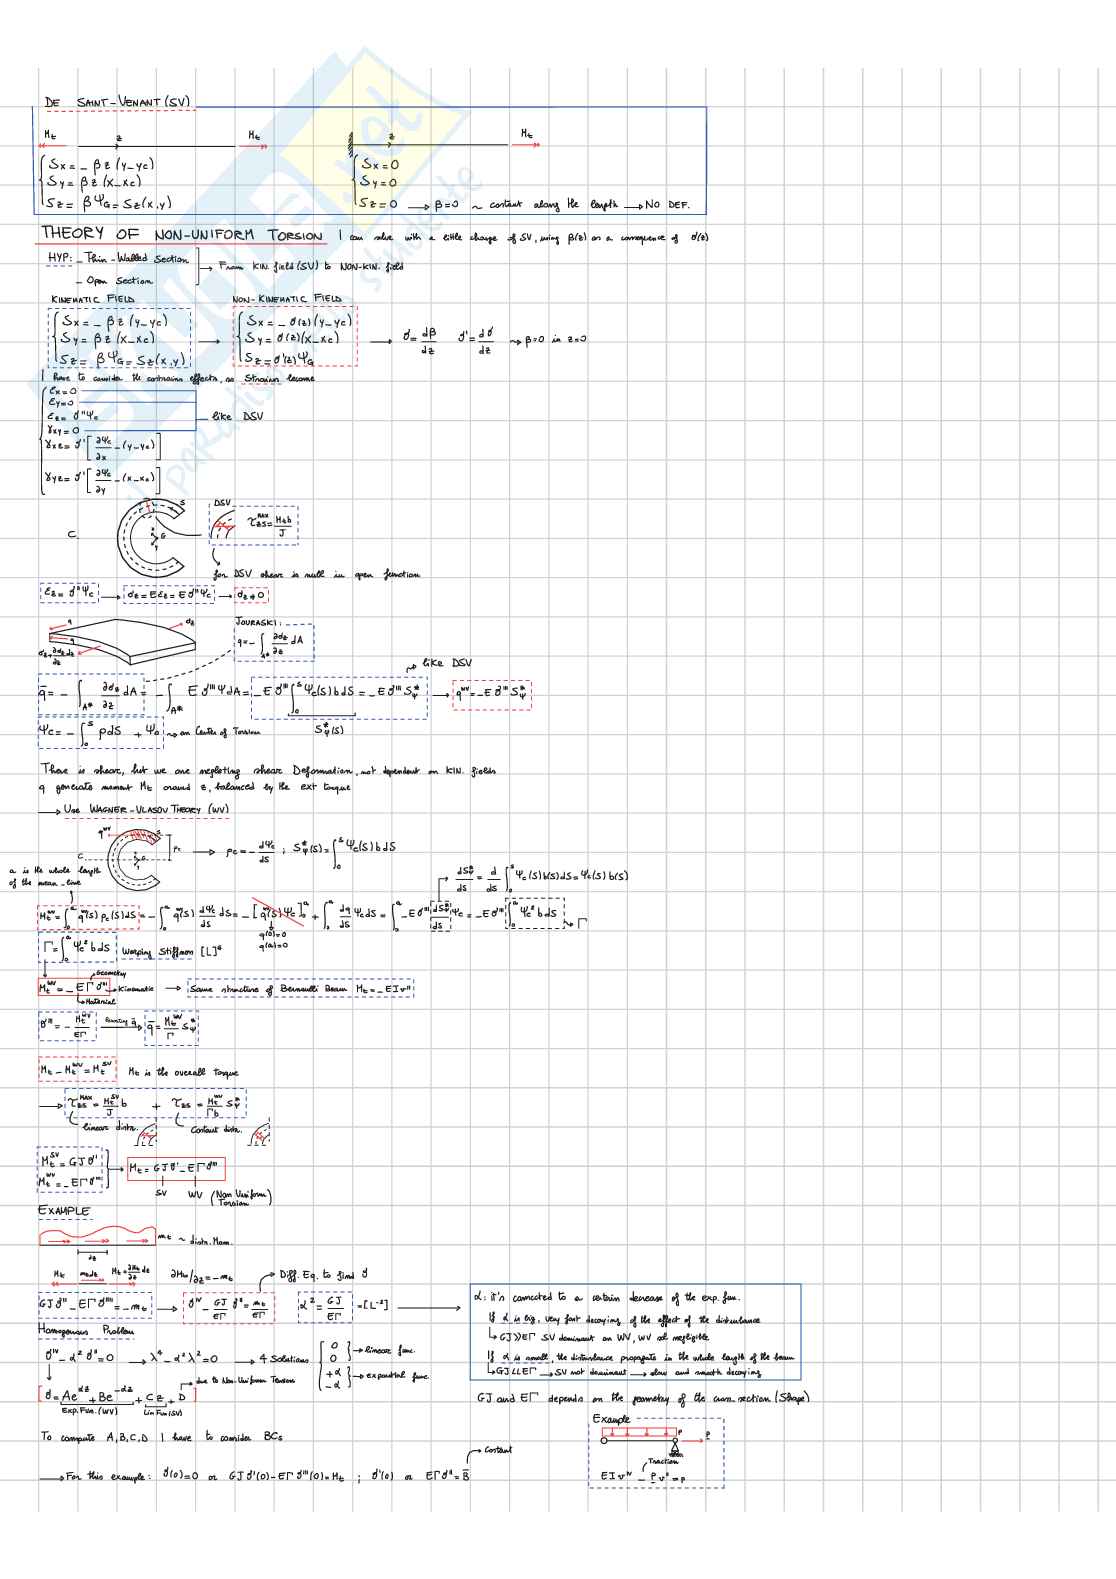 DE SAINT-VENANT (SV)
Mt z Mt z Mt
Sx = - βz (y-yc) Sx = 0
Sy = βz (x-xc) Sy = 0
Sz = βΨG = Sz(x,y) Sz = 0 → β=0 ~ costant along the length → NO DEF.
THEORY OF NON-UNIFORM TORSION I can solve with a little change of SV, using β(z) as a consequence of ϑ(z)
HYP: - Thin-Walled Section
- Open Section
→ From KIN. field (SV) to NON-KIN. field
KINEMATIC FIELD NON-KINEMATIC FIELD
Sx = - βz (y-yc) Sx = - ϑ(z)(y-yc)
Sy = βz (x-xc) → Sy = ϑ(z)(x-xc) → ϑ = dβ/dz ϑ' = dϑ/dz ~> β=0 in z=0
Sz = βΨG = Sz(x,y) Sz = ϑ'(z)ΨG
I have to consider the constrains effects, so Strains become
εx = 0
εy = 0
εz = ϑ''Ψc — like DSV
γxy = 0
γxz = ϑ'[∂Ψc/∂x - (y-yc)]
γyz = ϑ'[∂Ψc/∂y - (x-xc)]
C G S DSV τzs^MAX = Mt b/J
for DSV shear is null in open function
εz = ϑ''Ψc → σz = Eεz = Eϑ''Ψc → σz ≠ 0
q σz
q
σz + ∂σz/∂z dz
JOURASKI:
q = - ∫A* ∂σz/∂z dA
like DSV
q̄ = - ∫A* ∂σz/∂z dA = - ∫A* E ϑ''' Ψ dA = - E ϑ''' ∫0^s Ψc(s) b dS = - E ϑ''' SΨ* → q^WV = - E ϑ''' SΨ*
SΨ*(s)
Ψc = - ∫0^s ρ dS + Ψ0 ~> on Center of Torsion
There is shear, but we are negleting shear Deformation, not dependent on KIN. fields
q generate moment Mt around z, balanced by the ext torque
→ Use WAGNER-VLASOV THEORY (WV)
q^WV S ρc C G → ρc = - dΨc/dS ; SΨ*(s) = ∫0^s Ψc(s) b dS
a is the whole length
of the mean-line
dSΨ*/dS = d/dS ∫0^s Ψc(s) b(s) dS = Ψc(s) b(s)
Mt^WV = ∫0^a q^WV(s) ρc(s) dS = - ∫0^a q^WV(s) dΨc/dS dS = - [q^WV(s) Ψc]0^a + ∫0^a dq/dS Ψc dS = ∫0^a - E ϑ''' dSΨ*/dS Ψc = - E ϑ''' ∫0^a Ψc² b dS → Γ
q(0)=0
q(a)=0
Γ = ∫0^a Ψc² b dS Warping Stiffness [L]⁶
Geometry
Mt^WV = - EΓ ϑ''' → Kinematic → Same structure of Bernoulli Beam Mt = - EIv''
Material
ϑ''' = - Mt^WV/EΓ → q̄ = Mt^WV/Γ SΨ*
Mt - Mt^WV = Mt^SV Mt is the overall Torque
→ τzs^MAX = Mt^SV/J b + τzs = Mt^WV/Γb SΨ*
linear distr. Costant distr.
Mt^SV = GJϑ'
Mt^WV = - EΓϑ'''
→ Mt = GJϑ' - EΓϑ'''
SV WV (Non Uniform Torsion)
EXAMPLE
mt ~ distr. Mom.
dz
Mt mt dz Mt + ∂Mt/∂z dz ∂Mt/∂z = - mt Diff. Eq. to find ϑ
GJϑ'' - EΓϑ'''' = - mt → ϑ^IV - GJ/EΓ ϑ'' = mt/EΓ α² = GJ/EΓ = [L⁻²] →
α: it's connected to a certain decrease of the exp. fun.
If α is big, very fast decaying of the effect of the disturbance
GJ≫EΓ SV dominant on WV, WV sol negligible
If α is small, the disturbance propagate in the whole length of the beam
GJ≪EΓ → SV not dominant → slow and smooth decaying
Homogenous Problem
ϑ^IV - α²ϑ'' = 0 → λ⁴ - α²λ² = 0 → 4 Solutions
0
0
→ linear func.
+α
-α
→ expontial func.
due to Non-Uniform Torsion
ϑ = Ae^αz + Be^-αz + Cz + D
Exp. Fun. (WV) Lin Fun (SV)
GJ and EΓ depends on the geometry of the cross-section (Shape)
To compute A, B, C, D I have to consider BCs
Costant
→ For this example: ϑ(0)=0 or GJϑ'(0) - EΓϑ'''(0) = Mt ; ϑ'(0) or EΓϑ'' = B̄
Example
p P
Traction
EI v^IV - P v'' = p